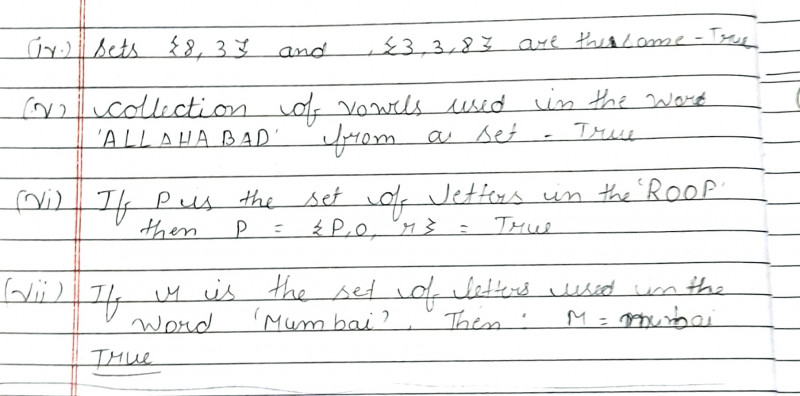 (iv.) Sets {8, 3} and , {3, 3, 8} are the same - True
(v) collection of vowels used in the word
'ALLAHABAD' from a set - True
(vi) If P is the set of letters in the 'ROOP'
then P = {P, O, r} = True
(vii) If M is the set of letters used in the
Word 'Mumbai'. Then : M =
True